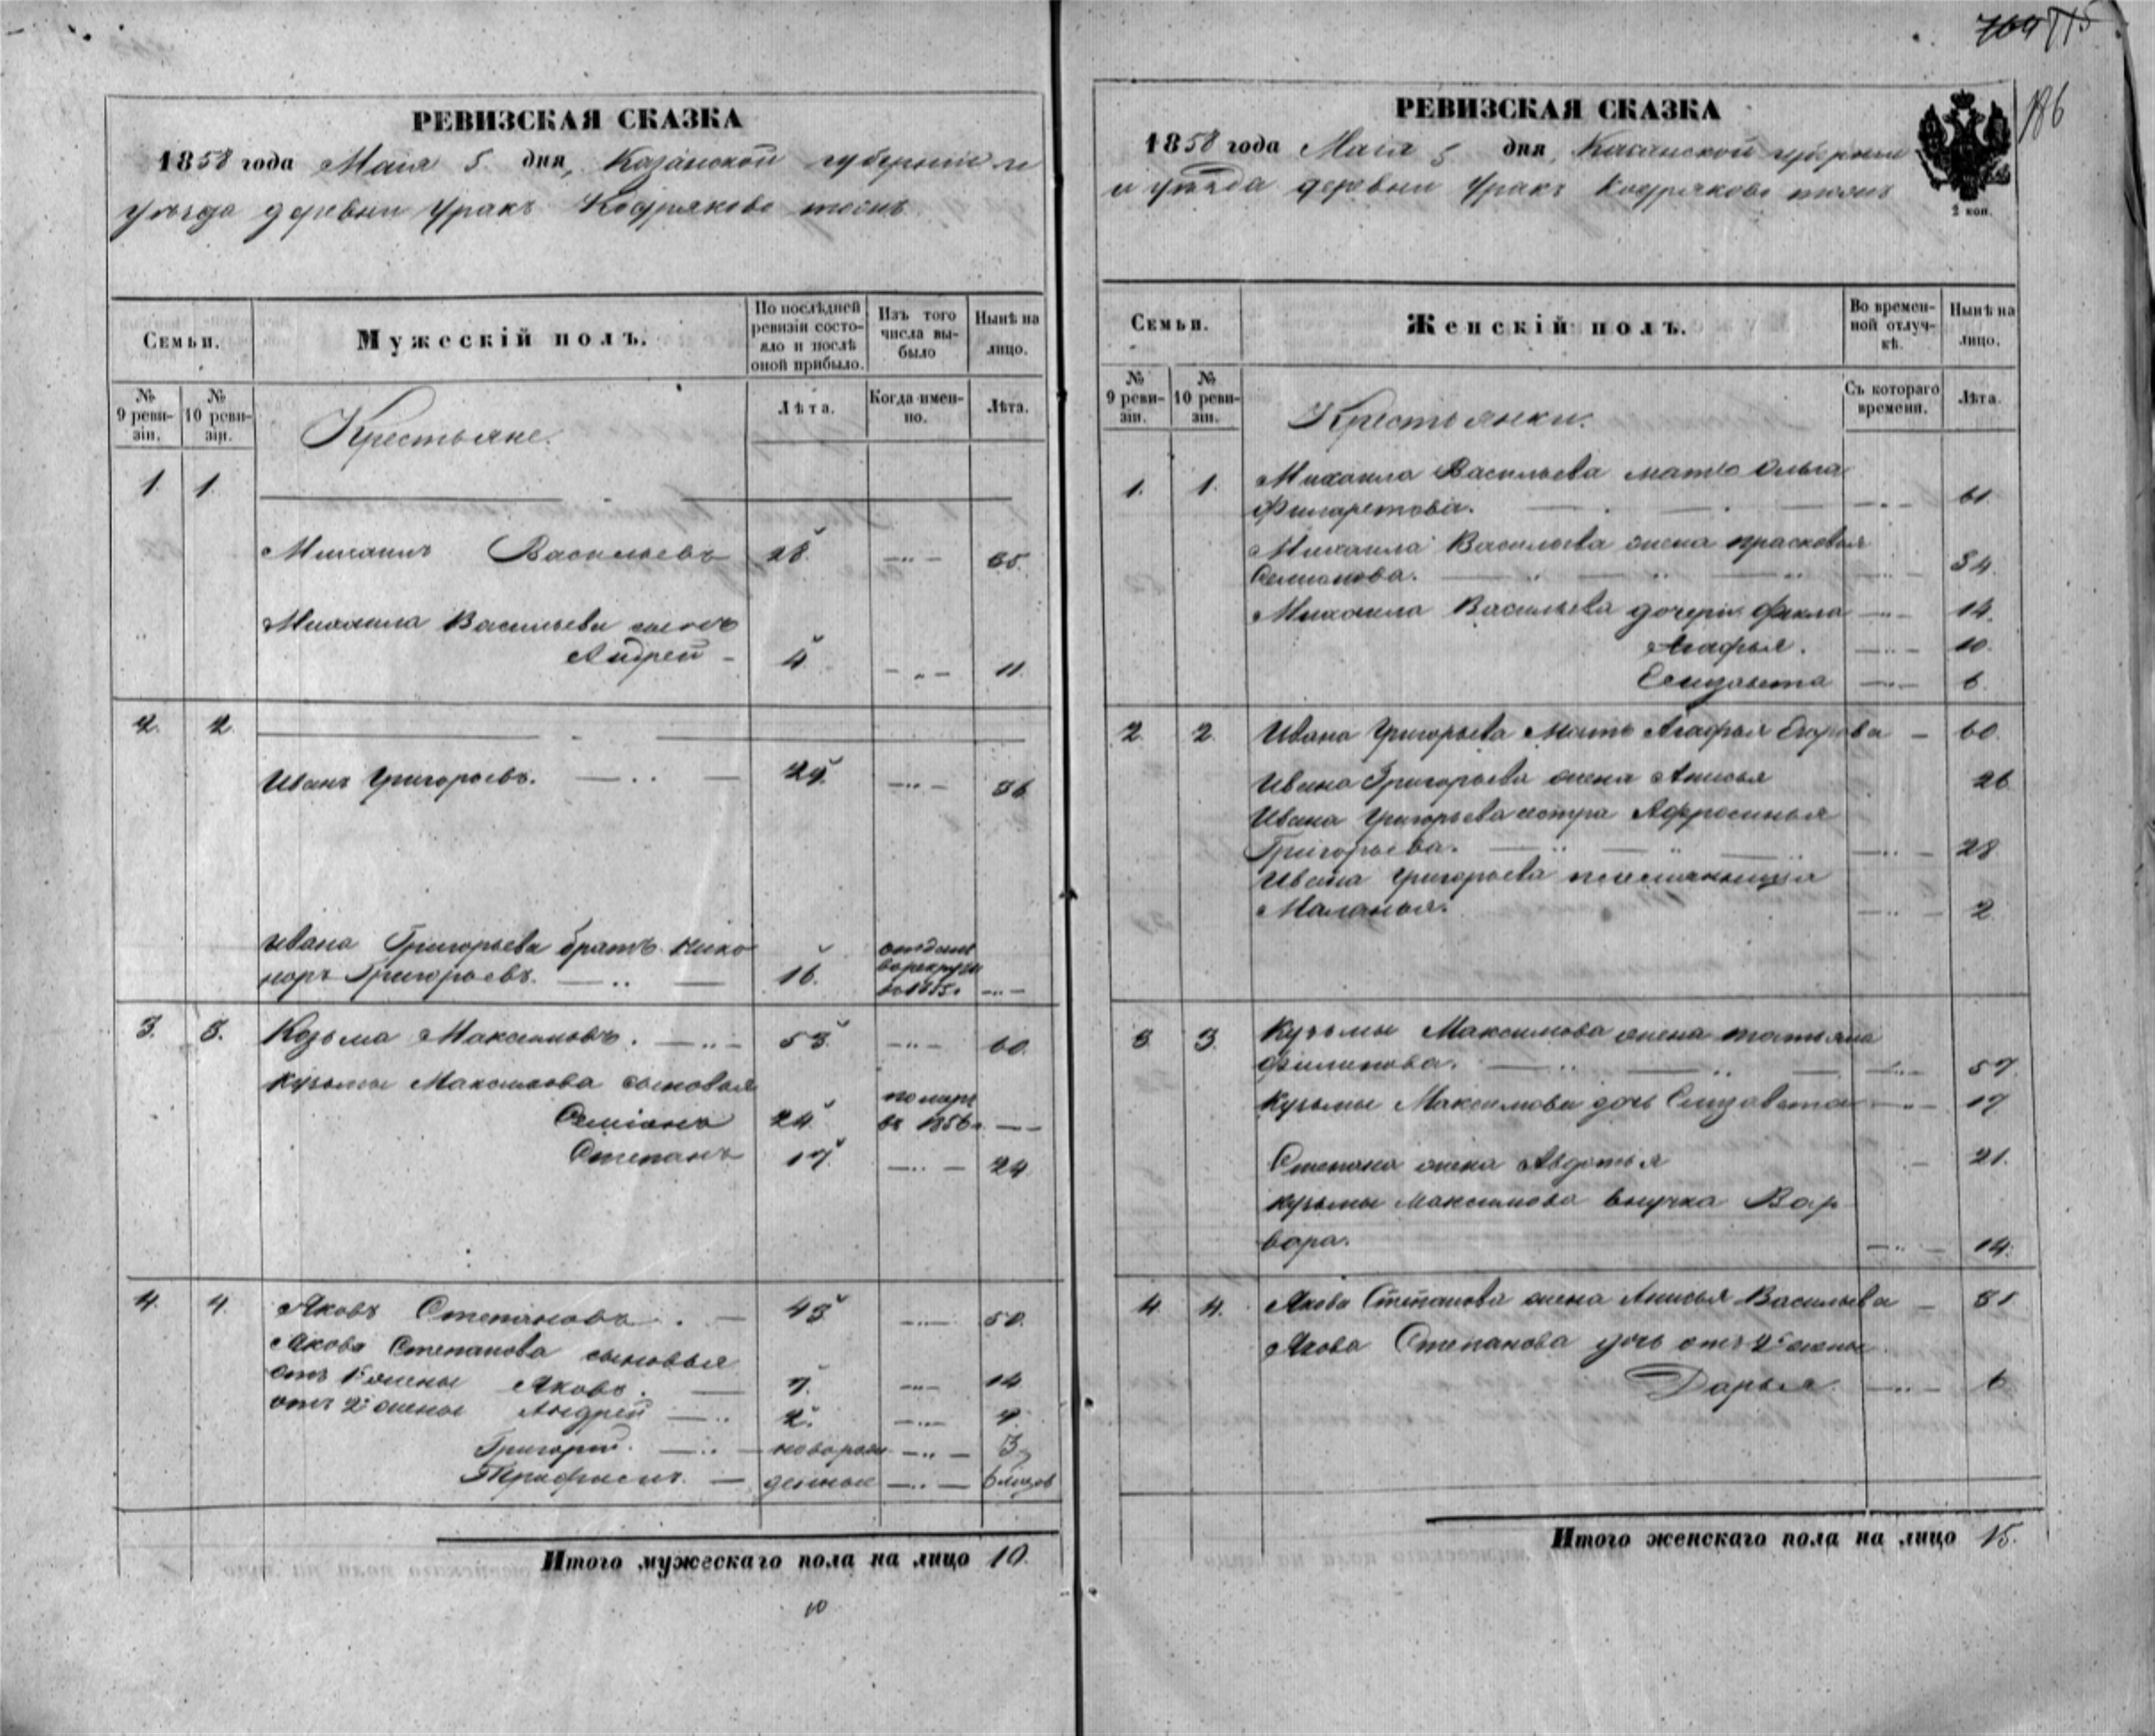 РЕВИЗСКАЯ СКАЗКА
1858 года Маія 5 дня, Казанской губерніи и
уѣзда деревни Уракъ
Семьи.
Мужескій полъ.
По послѣдней ревизіи состояло и послѣ оной прибыло.
Изъ того числа выбыло
Нынѣ на лицо.
№ 9 ревизіи.
№ 10 ревизіи.
Крестьяне.
Лѣта.
Когда именно.
Лѣта.
1. 1.
Михаилъ Васильевъ 28. 35.
Михаила Васильева сынъ
Андрей 4 11.
2. 2.
Иванъ Григорьевъ. 29. 36
Ивана Григорьева братъ Нико
норъ Григорьевъ. 16. отданъ
в рекруты
3. 3. Козьма Максимовъ. 53. 60.
Кузьмы Максимова сыновья
Семіонъ 24. помре въ 1856
Степанъ 17. 24
4. 4. Яковъ Степановъ. 43 50.
Якова Степанова сыновья
отъ 1й жены Яковъ. 7. 14
отъ 2й жены Андрей 2. 9.
Григорій. новорож 3
денные
Итого мужескаго пола на лицо 10.
10
709 715
186
РЕВИЗСКАЯ СКАЗКА
1858 года Маія 5 дня, Казанской губерніи
и уѣзда деревни Уракъ
2 коп.
Семьи.
Женскій полъ.
Во временной отлучкѣ.
Нынѣ на лицо.
№ 9 ревизіи.
№ 10 ревизіи.
Крестьянки.
Съ котораго времени.
Лѣта.
1. 1. Михаила Васильева мать Ольга
Филаретова. 61
Михаила Васильева жена Прасковья
Семионова. 34.
Михаила Васильева дочери Фекла 14.
Агафья. 10.
Елизавета 6.
2. 2. Ивана Григорьева Мать Агафья Егорова 60.
Ивана Григорьева жена Анисья 26
Ивана Григорьева сестра Афросинья
Григорьева. 28
Ивана Григорьева племянница
Маланья. 2
3 3. Кузьмы Максимова жена Татьяна
Филипова. 57.
Кузьмы Максимова дочь Елизавета 17
Степана жена Авдотья 21.
Кузьмы Максимова внучка Вар
вара. 14.
4. 4. Якова Степанова жена Анисья Васильева 31
Якова Степанова дочь отъ 2й жены
Дарья. 6
Итого женскаго пола на лицо 15.